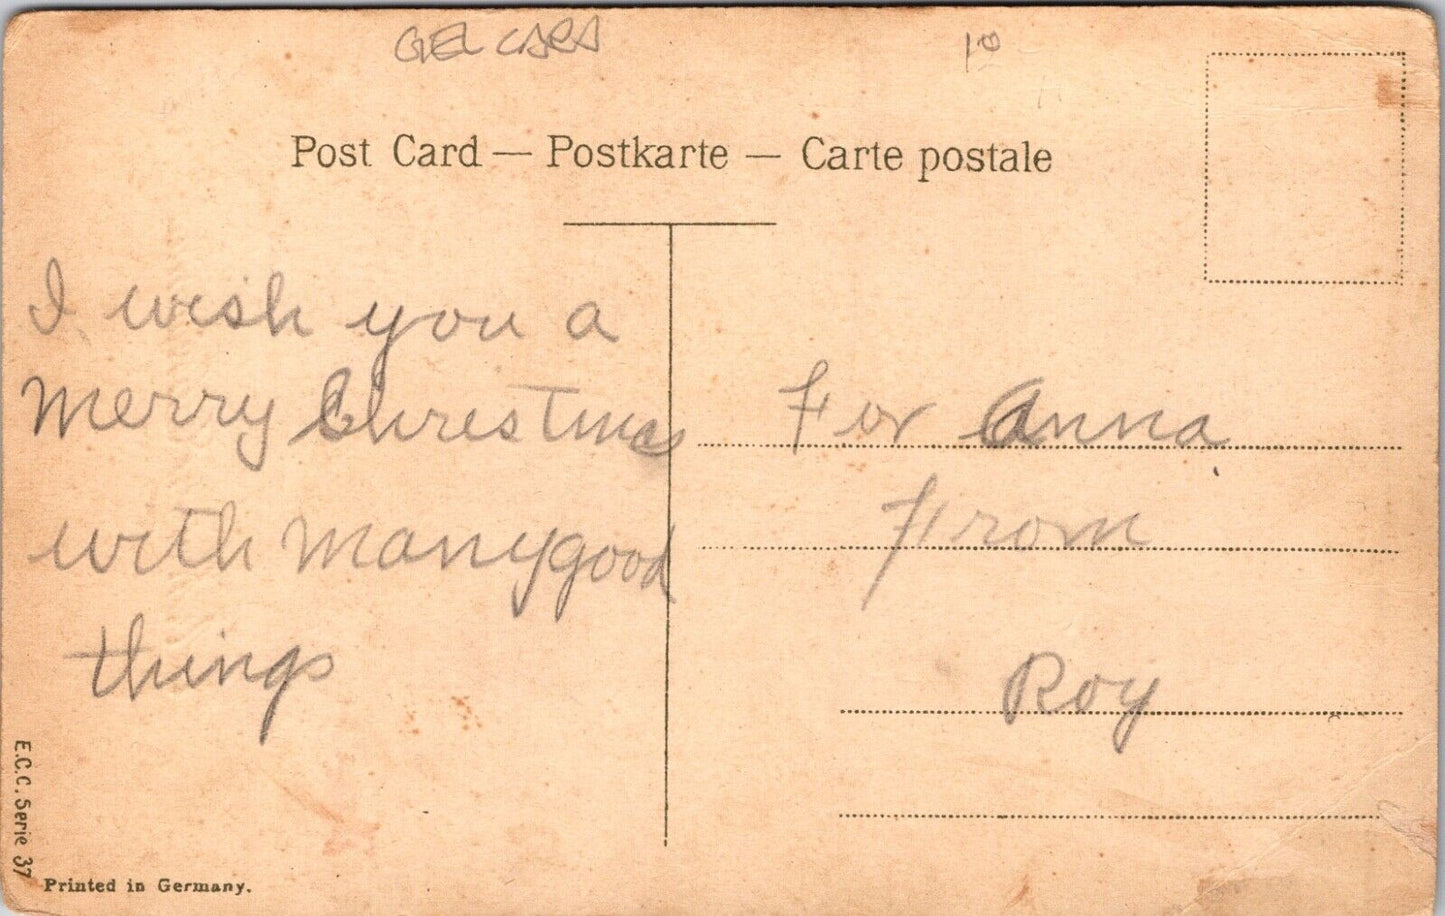 10
Post Card — Postkarte — Carte postale
I wish you a
merry Christmas
with many good
things
For Anna
From
Roy
E.C.C. Serie 37
Printed in Germany.